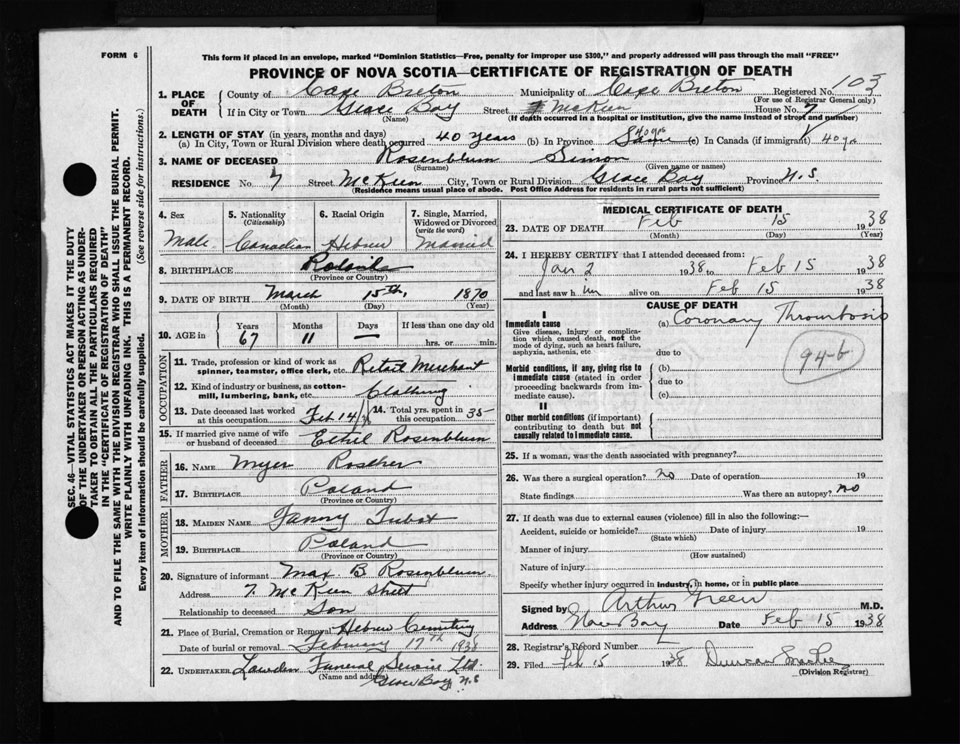 FORM 6
This form if placed in an envelope, marked "Dominion Statistics—Free, penalty for improper use $300," and properly addressed will pass through the mail "FREE"
PROVINCE OF NOVA SCOTIA—CERTIFICATE OF REGISTRATION OF DEATH
SEC. 46—VITAL STATISTICS ACT MAKES IT THE DUTY
OF THE UNDERTAKER OR PERSON ACTING AS UNDER-
TAKER TO OBTAIN ALL THE PARTICULARS REQUIRED
IN THE "CERTIFICATE OF REGISTRATION OF DEATH"
AND TO FILE THE SAME WITH THE DIVISION REGISTRAR WHO SHALL ISSUE THE BURIAL PERMIT.
WRITE PLAINLY WITH UNFADING INK. THIS IS A PERMANENT RECORD.
Every item of information should be carefully supplied. (See reverse side for instructions.)
1. PLACE OF DEATH County of Cape Breton Municipality of Cape Breton Registered No. 103
(For use of Registrar General only)
If in City or Town Glace Bay Street McKeen House No. 7
(Name) (If death occurred in a hospital or institution, give the name instead of street and number)
2. LENGTH OF STAY (in years, months and days)
(a) In City, Town or Rural Division where death occurred 40 years (b) In Province Same 40 yrs (c) In Canada (if immigrant) 40 yrs
3. NAME OF DECEASED Rosenblum Simon
(Surname) (Given name or names)
RESIDENCE No. 7 Street McKeen City, Town or Rural Division Glace Bay Province N.S.
(Residence means usual place of abode. Post Office Address for residents in rural parts not sufficient)
4. Sex 5. Nationality (Citizenship) 6. Racial Origin 7. Single, Married, Widowed or Divorced (write the word)
Male Canadian Hebrew Married
8. BIRTHPLACE
(Province or Country)
9. DATE OF BIRTH March 15th, 1870
(Month) (Day) (Year)
10. AGE in Years Months Days If less than one day old
67 11 — hrs. or min.
OCCUPATION
11. Trade, profession or kind of work as spinner, teamster, office clerk, etc. Retail Merchant
12. Kind of industry or business, as cotton-mill, lumbering, bank, etc. Clothing
13. Date deceased last worked at this occupation Feb 14/38 14. Total yrs. spent in this occupation 35
15. If married give name of wife or husband of deceased Ethel Rosenblum
FATHER
16. NAME Myer
17. BIRTHPLACE Poland
(Province or Country)
MOTHER
18. MAIDEN NAME Fanny
19. BIRTHPLACE Poland
(Province or Country)
20. Signature of informant Max B Rosenblum
Address 7. McKeen Street
Relationship to deceased Son
21. Place of Burial, Cremation or Removal Hebrew Cemetery
Date of burial or removal February 17th 1938
22. UNDERTAKER Funeral Service Ltd
(Name and address) Glace Bay N.S
MEDICAL CERTIFICATE OF DEATH
23. DATE OF DEATH Feb 15 1938
(Month) (Day) (Year)
24. I HEREBY CERTIFY that I attended deceased from:
Jan 2 1938 to Feb 15 1938
and last saw him alive on Feb 15 1938
CAUSE OF DEATH
I
Immediate cause (a) Coronary Thrombosis
Give disease, injury or complication which caused death, not the mode of dying, such as heart failure, asphyxia, asthenia, etc
94-b
due to
Morbid conditions, if any, giving rise to immediate cause (stated in order proceeding backwards from immediate cause). (b)
due to
(c)
II
Other morbid conditions (if important) contributing to death but not causally related to immediate cause.
25. If a woman, was the death associated with pregnancy?
26. Was there a surgical operation? no Date of operation 19
State findings Was there an autopsy? no
27. If death was due to external causes (violence) fill in also the following:—
Accident, suicide or homicide? Date of injury 19
(State which)
Manner of injury
(How sustained)
Nature of injury
Specify whether injury occurred in industry, in home, or in public place
Signed by Arthur Green M.D.
Address Glace Bay Date Feb 15 1938
28. Registrar's Record Number
29. Filed Feb 15 1938 Duncan
(Division Registrar)